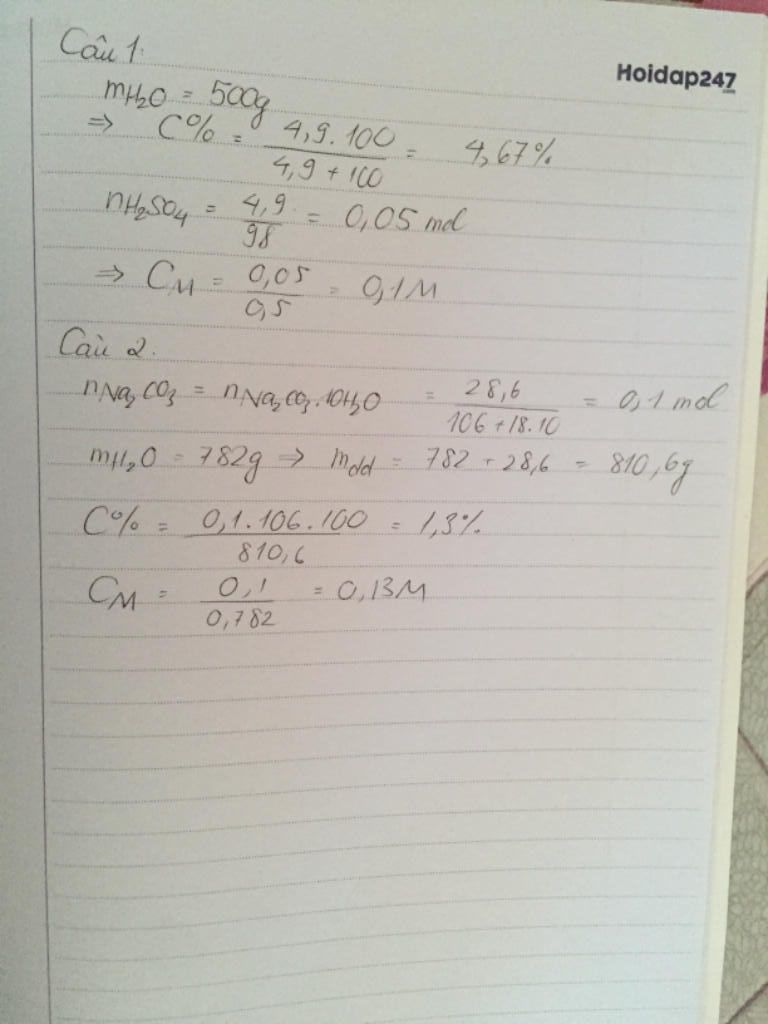 Câu 1:
Hoidap247
mH₂O = 500g
=> C% = 4,9.100 / 4,9 + 100 = 4,67%
nH₂SO₄ = 4,9 / 98 = 0,05 mol
=> CM = 0,05 / 0,5 = 0,1M
Câu 2.
nNa₂CO₃ = nNa₂CO₃.10H₂O = 28,6 / 106 + 18.10 = 0,1 mol
mH₂O = 782g => mdd = 782 + 28,6 = 810,6g
C% = 0,1.106.100 / 810,6 = 1,3%
CM = 0,1 / 0,782 = 0,13M